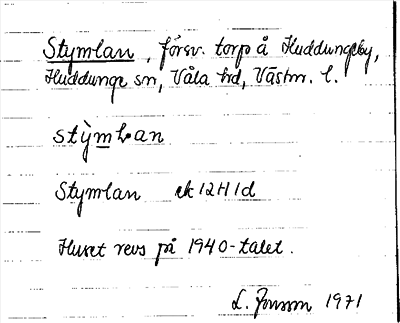 Stymlan, försv. torp å Huddungeby,
Huddunge sn, Våla hd, Västm. l.
stỳmlan
Stymlan ek 12H 1d
Huset revs på 1940-talet.
L. Jonsson 1971